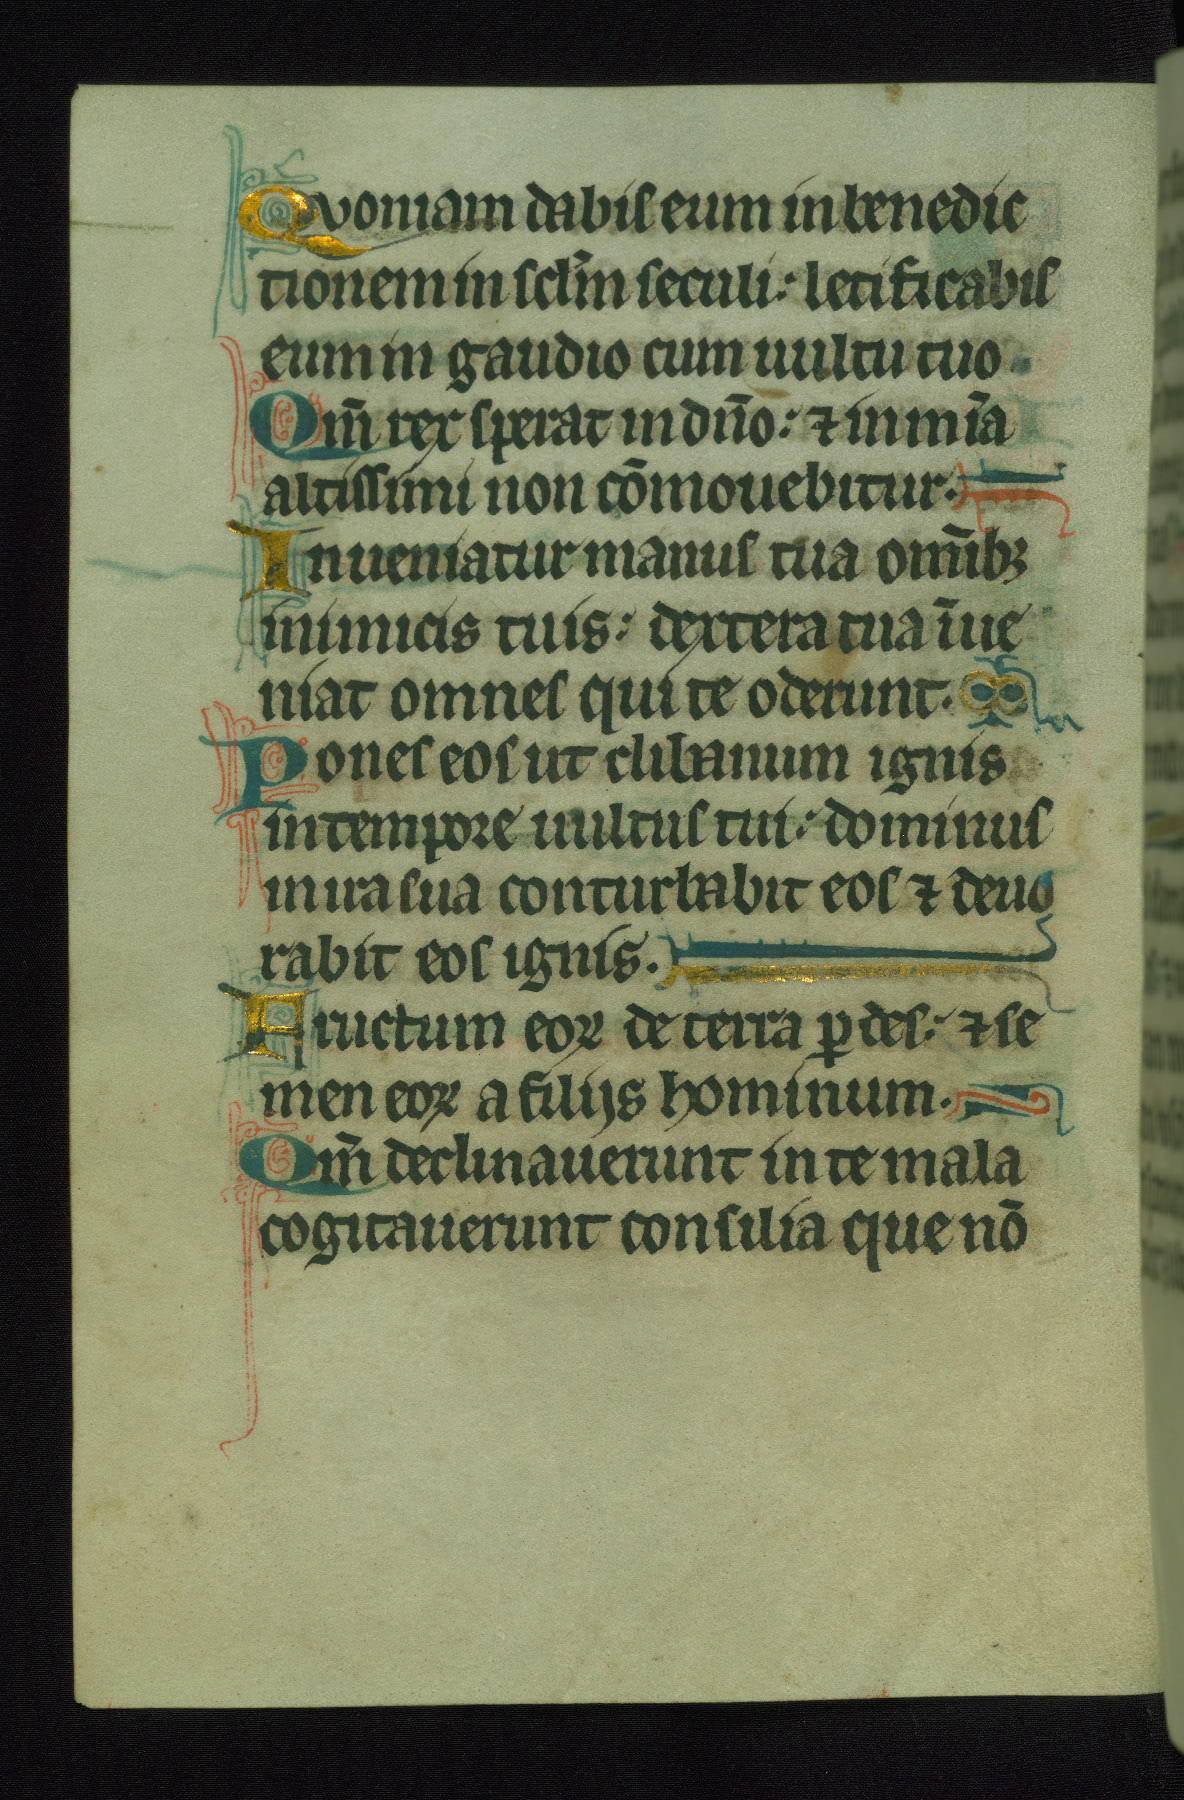 Quoniam dabis eum in benedic
tionem in sclm̄ seculi: letificabis
eum in gaudio cum uultu tuo.
Qm̄ rex sperat in dn̄o: ⁊ in mīa
altissimi non cōmouebitur.
Inueniatur manus tua omībꝫ
inimicis tuis: dextera tua īue
niat omnes qui te oderunt.
Pones eos ut clibanum ignis
in tempore uultus tui: dominus
in ira sua conturbabit eos ⁊ deuo
rabit eos ignis.
Fructum eoꝝ de terra ꝑdes: ⁊ se
men eoꝝ a filijs hominum.
Qm̄ declinauerunt in te mala
cogitauerunt consilia que nō